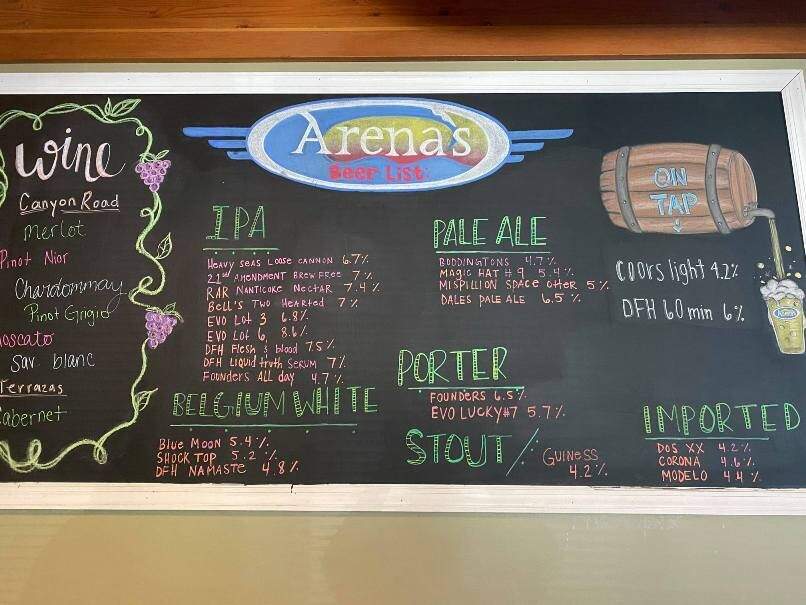 wine
Canyon Road
Merlot
Pinot Nior
Chardonnay
Pinot Grigio
Moscato
Sav. blanc
Terrazas
Cabernet
Arena's
Beer List:
IPA
Heavy Seas Loose Cannon 6.7%
21st Amendment Brew Free 7%
RAR Nanticoke Nectar 7.4%
Bell's Two Hearted 7%
Evo Lot 3 6.8%
Evo Lot 6 8.6%
DFH Flesh & blood 7.5%
DFH Liquid truth Serum 7%
Founders All day 4.7%
BELGIUM WHITE
Blue Moon 5.4%
Shock Top 5.2%
DFH Namaste 4.8%
PALE ALE
Boddingtons 4.7%
Magic Hat #9 5.4%
Mispillion Space Otter 5%
Dales Pale Ale 6.5%
PORTER
Founders 6.5%
Evo Lucky #7 5.7%
STOUT/
Guiness
4.2%
ON
TAP
Coors light 4.2%
DFH 60 min 6%
Arena's
IMPORTED
Dos XX 4.2%
Corona 4.6%
Modelo 4.4%